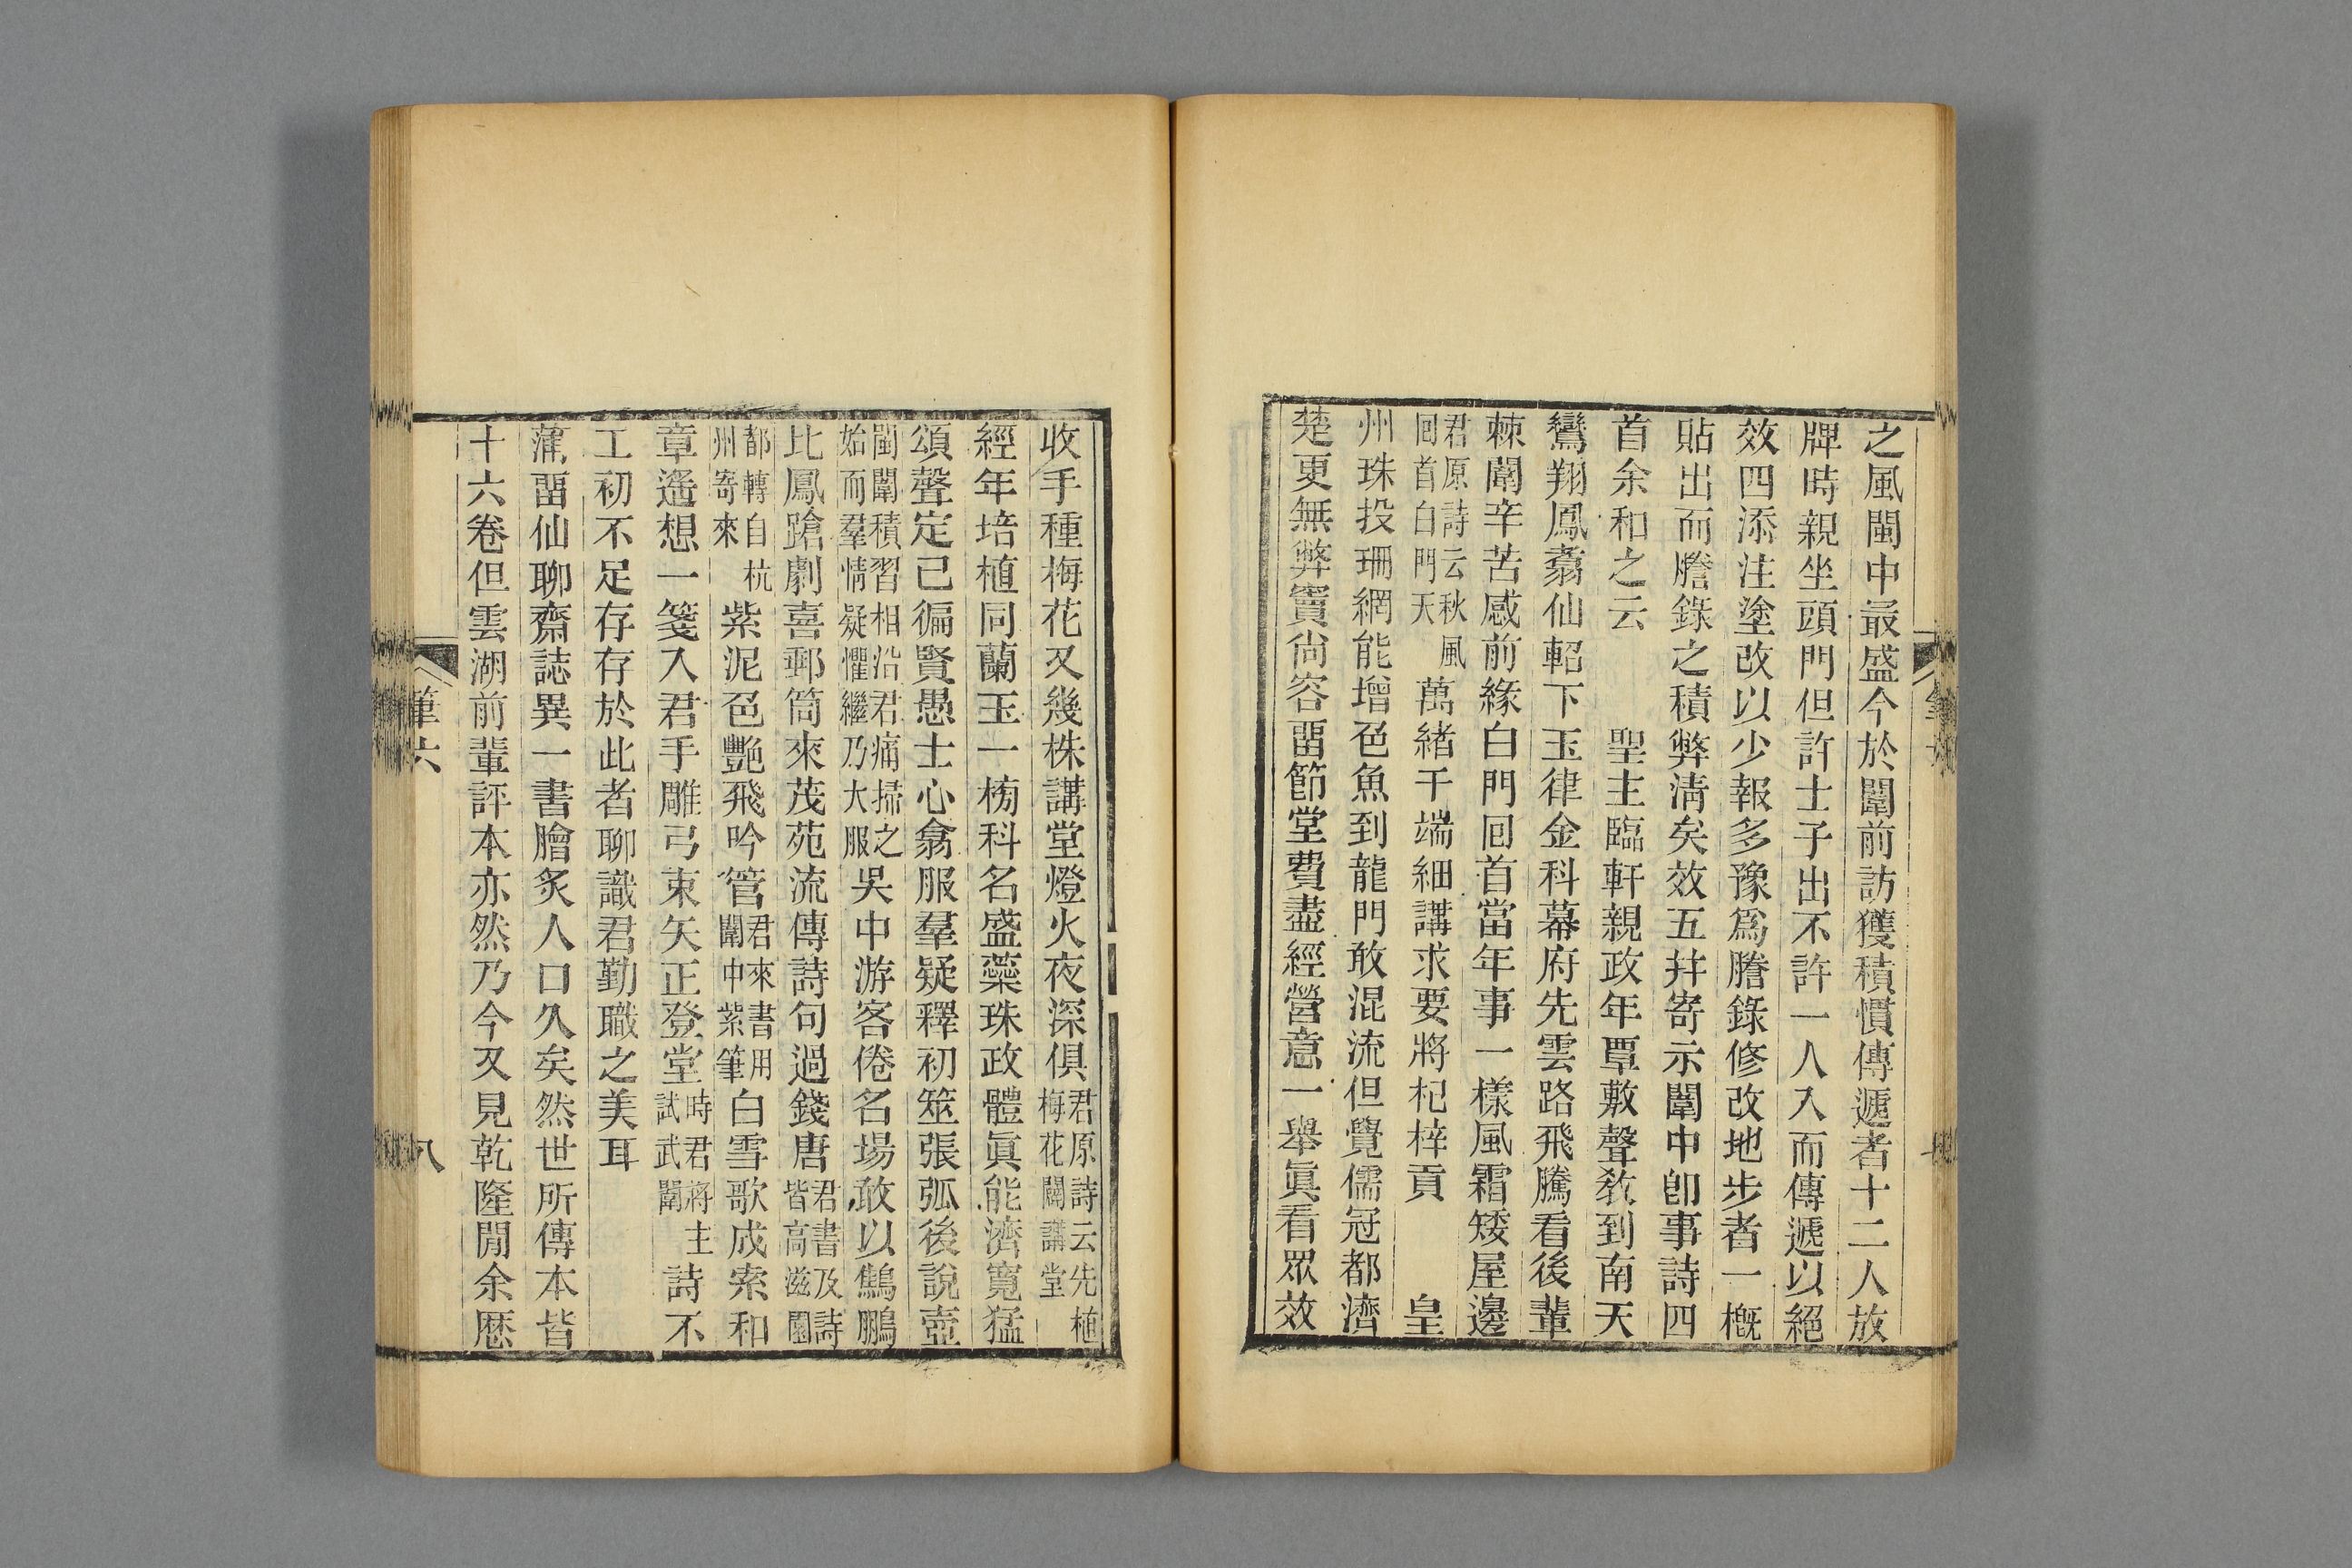 之風閩中最盛今於闈前訪獲積慣傳遞者十二人放
牌時親坐頭門但許士子出不許一人入而傳遞以絕
效四添注塗改以少報多豫爲謄錄修改地步者一槪
貼出而謄錄之積弊淸矣效五幷寄示闈中卽事詩四
首余和之云　聖主臨軒親政年覃敷聲敎到南天
鸞翔鳳翥仙軺下玉律金科幕府先雲路飛騰看後輩
棘闈辛苦感前緣白門囘首當年事一樣風霜矮屋邊
君原詩云秋風
囘首白門天
萬緒千端細講求要將杞梓貢　皇
州珠投珊網能增色魚到龍門敢混流但覺儒冠都濟
楚更無弊竇尙容畱節堂費盡經營意一舉眞看眾效
收手種梅花又幾株講堂燈火夜深俱
君原詩云先植
梅花闢講堂
經年培植同蘭玉一榜科名盛蘂珠政體眞能濟寬猛
頌聲定已徧賢愚士心翕服羣疑釋初筮張弧後說壺
閩闈積習相沿君痛掃之
始而羣情疑懼繼乃大服
吳中游客倦名場敢以鷦鵬
比鳳蹌劇喜郵筒來茂苑流傳詩句過錢唐
君書及詩
皆高滋園
都轉自杭
州寄來
紫泥色艷飛吟管
君來書用
闈中紫筆
白雪歌成索和
章遙想一箋入君手雕弓束矢正登堂
時君將主
試武闈
詩不
工初不足存存於此者聊識君勤職之美耳
蒲畱仙聊齋誌異一書膾炙人口久矣然世所傳本皆
十六卷但雲湖前輩評本亦然乃今又見乾隆閒余歷
筆六
八